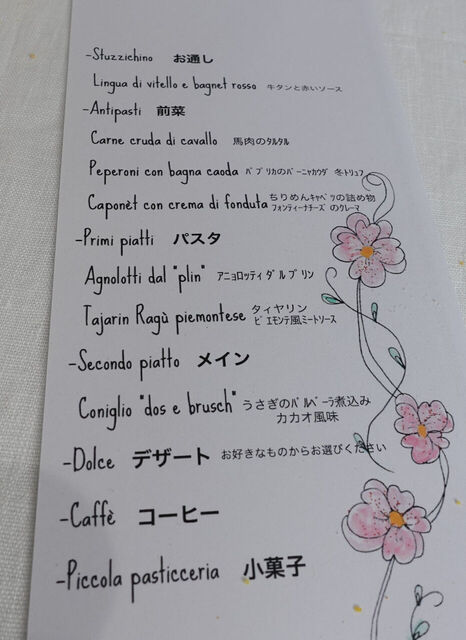 -Stuzzichino お通し
Lingua di vitello e bagnet rosso 牛タンと赤いソース
-Antipasti 前菜
Carne cruda di cavallo 馬肉のﾀﾙﾀﾙ
Peperoni con bagna caoda ﾊﾟﾌﾟﾘｶのﾊﾞｰﾆｬｶｳﾀﾞ 冬ﾄﾘｭﾌ
Caponèt con crema di fonduta ちりめんｷｬﾍﾞﾂの詰め物
フォンティーナチーズ のクレーマ
-Primi piatti パスタ
Agnolotti dal "plin" アニョロッティ ダ ル プ リン
Tajarin Ragù piemontese タィヤリン
ピ エモンテ風ミートソース
-Secondo piatto メイン
Coniglio "dos e brusch" うさぎのﾊﾞﾙﾍﾞｰﾗ煮込み
カカオ風味
-Dolce デザート お好きなものからお選びください
-Caffè コーヒー
-Piccola pasticceria 小菓子